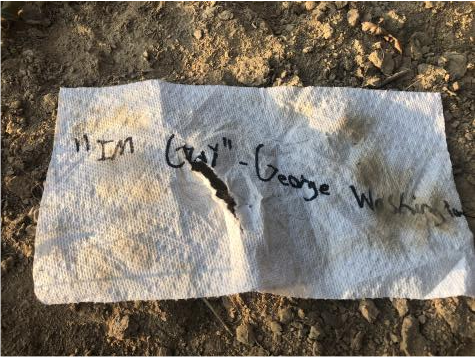 "IM GAY" - George Washington